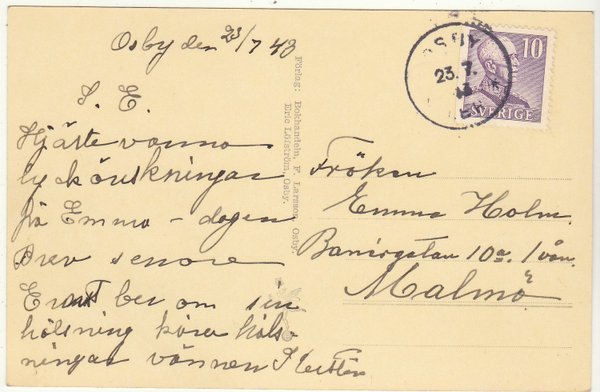 Osby den 23/7 43
S. E.
Hjärte varma
lyckönskningar
på Emma-dagen
Brev senare
ber om
hälsning kära häls-
ningar vännen
Förlag: Bokhandeln, F. Larsson, Osby.
Eric Löfström, Osby.
OSBY
23.7.
43
10
SVERIGE
Fröken
Emma Holm.
10a. 1 vån.
Malmö